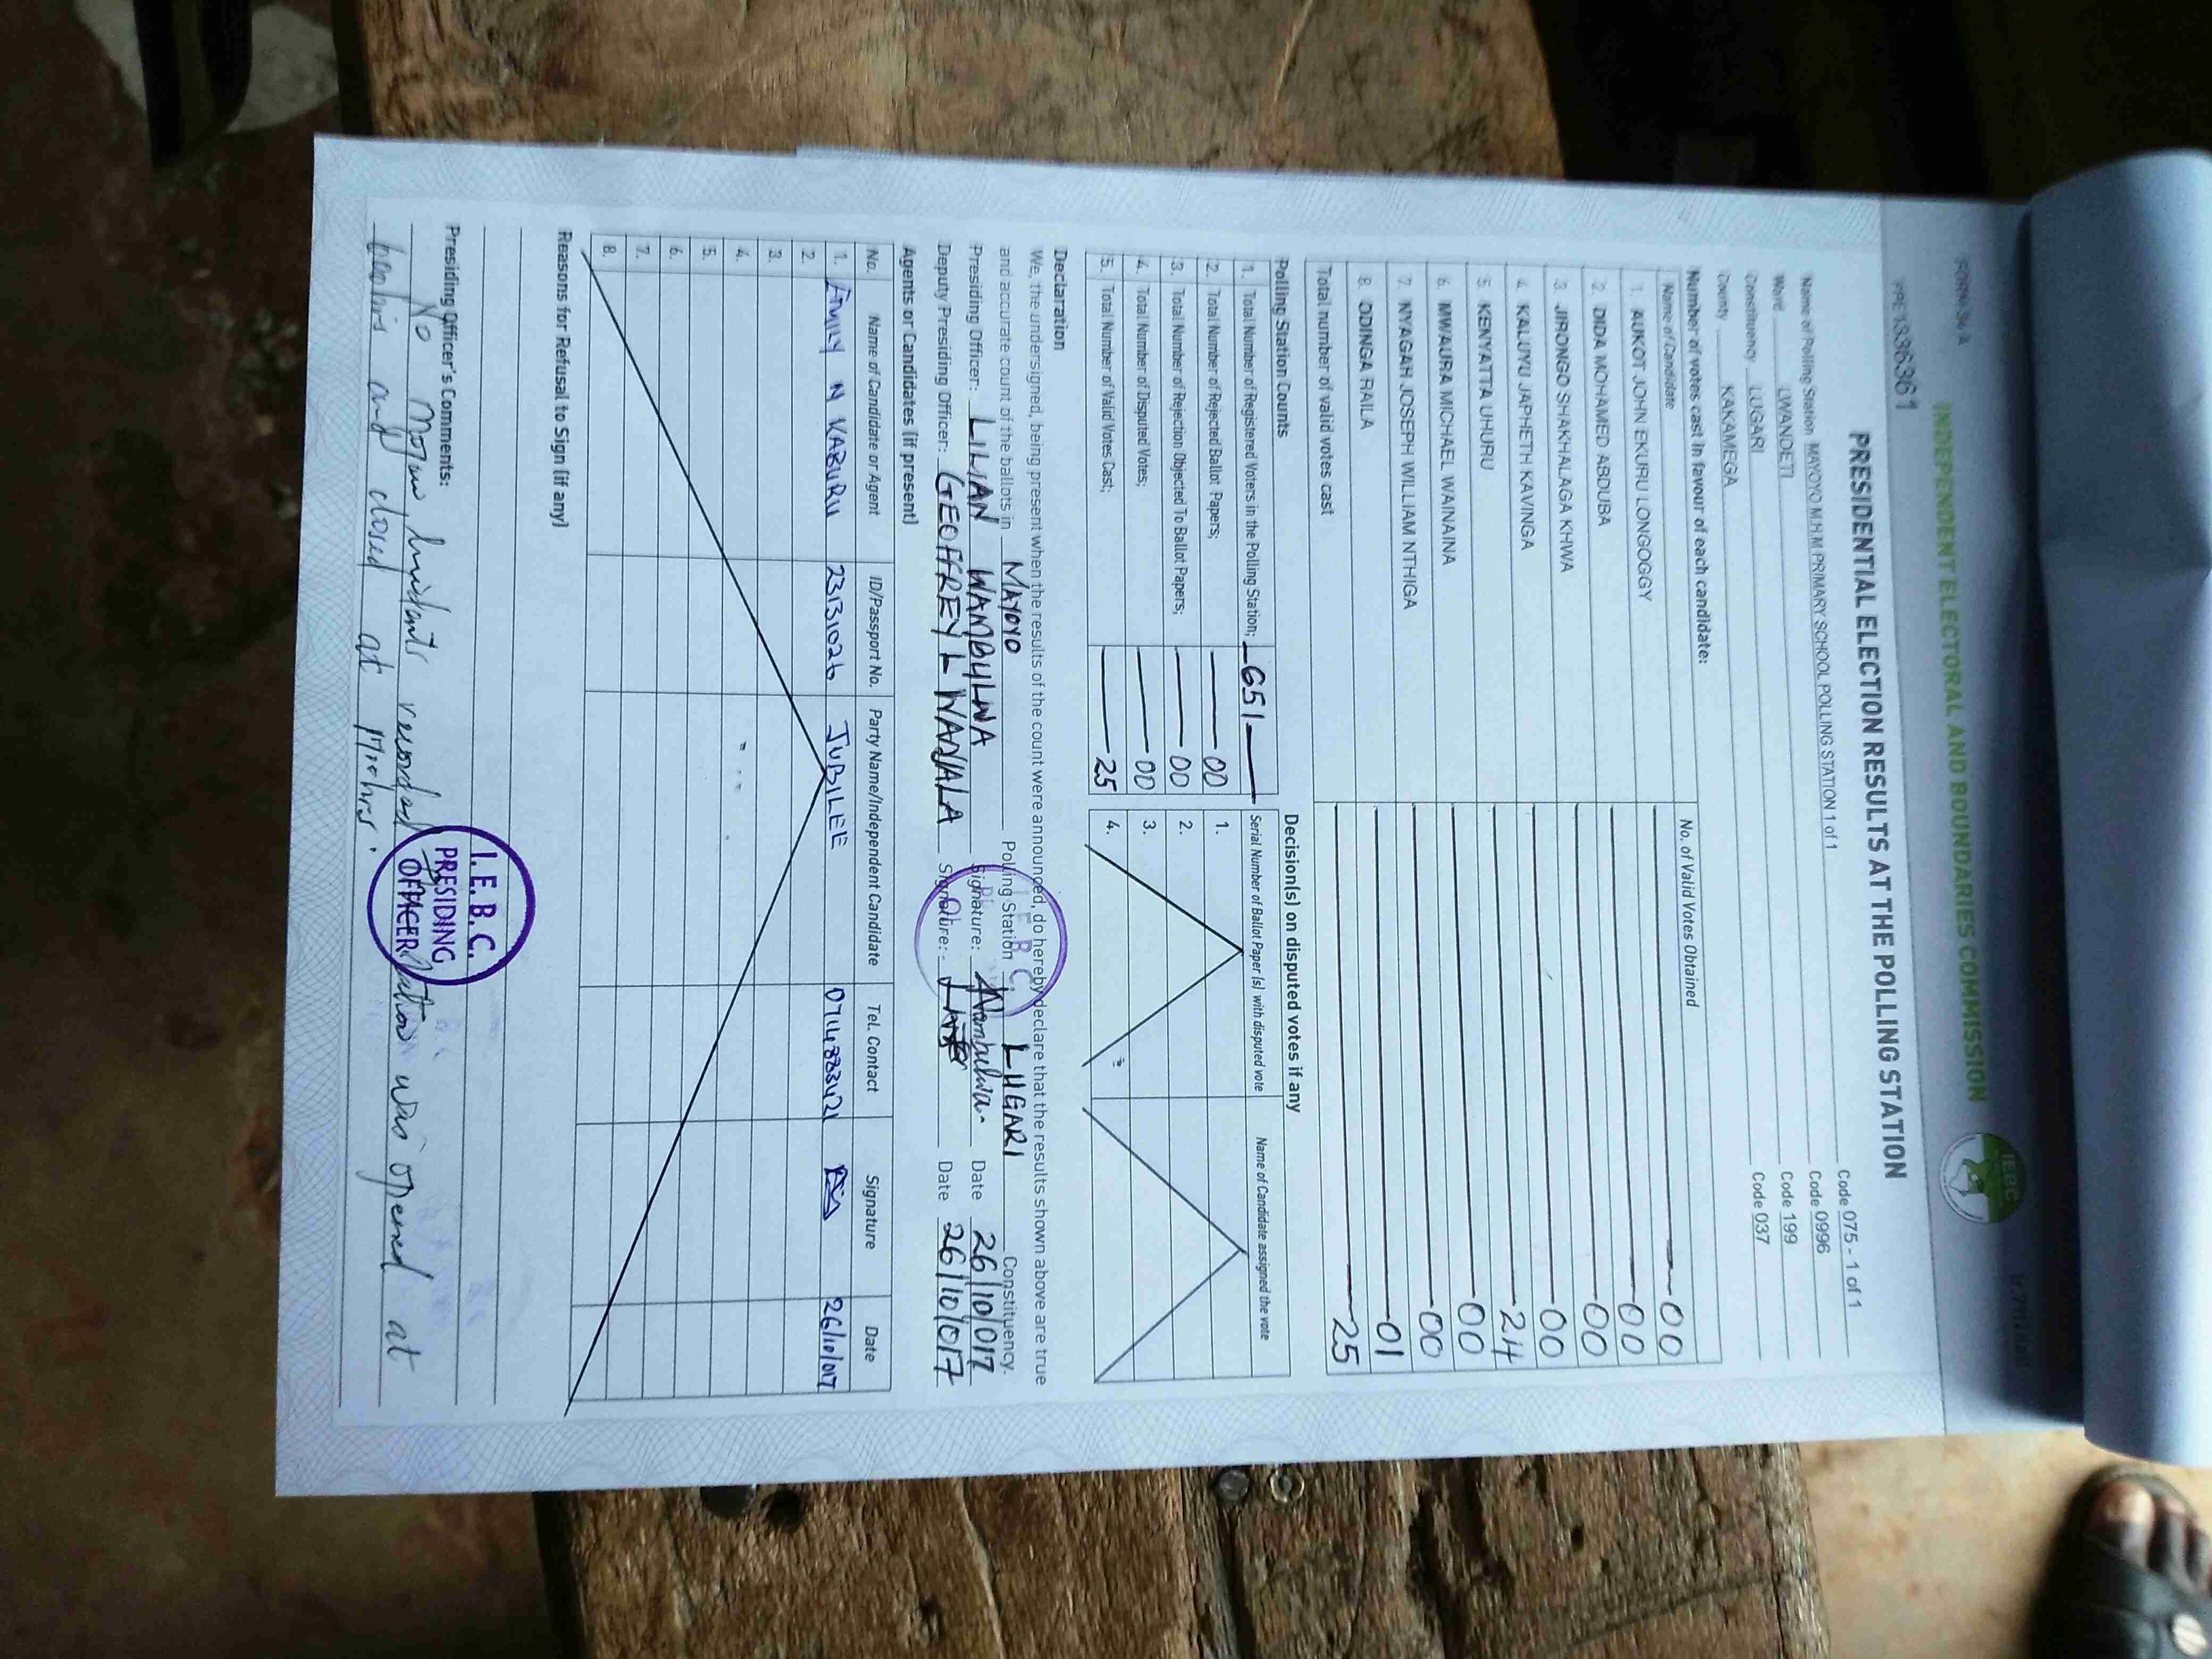 FORM 34 A
INDEPENDENT ELECTORAL AND BOUNDARIES COMMISSION
IEBC
PRE1336361
PRESIDENTIAL ELECTION RESULTS AT THE POLLING STATION
Name of Polling Station MAYOYO M.H.M PRIMARY SCHOOL POLLING STATION 1 of 1 Code 075 - 1 of 1
Ward LWANDETI Code 0996
Constituency LUGARI Code 199
County KAKAMEGA Code 037
Number of votes cast in favour of each candidate:
Name of Candidate No. of Valid Votes Obtained
1. AUKOT JOHN EKURU LONGOGGY 00
2. DIDA MOHAMED ABDUBA 00
3. JIRONGO SHAKHALAGA KHWA 00
4. KALUYU JAPHETH KAVINGA 00
5. KENYATTA UHURU 24
6. MWAURA MICHAEL WAINAINA 00
7. NYAGAH JOSEPH WILLIAM NTHIGA 00
8. ODINGA RAILA 01
Total number of valid votes cast 25
Polling Station Counts Decision(s) on disputed votes if any
1. Total Number of Registered Voters in the Polling Station; 651 Serial Number of Ballot Paper (s) with disputed vote Name of Candidate assigned the vote
2. Total Number of Rejected Ballot Papers; 00 1.
3. Total Number of Rejection Objected To Ballot Papers; 00 2.
4. Total Number of Disputed Votes; 00 3.
5. Total Number of Valid Votes Cast; 25 4.
Declaration
We, the undersigned, being present when the results of the count were announced, do hereby declare that the results shown above are true
and accurate count of the ballots in MAYOYO Polling Station LUGARI Constituency.
Presiding Officer: LILIAN WAMBULWA Signature: Nambulwa. Date 26/10/017
Deputy Presiding Officer: GEOFFREY L WANJALA Signature: Date 26/10/017
Agents or Candidates (if present)
No. Name of Candidate or Agent ID/Passport No. Party Name/Independent Candidate Tel. Contact Signature Date
1. EMILY N KABURU 23131026 JUBILEE 0714888421 26/10/017
2.
3.
4.
5.
6.
7.
8.
Reasons for Refusal to Sign (if any)
I.E.B.C.
PRESIDING
OFFICER
Presiding Officer's Comments:
No recorded was opened at
and closed at